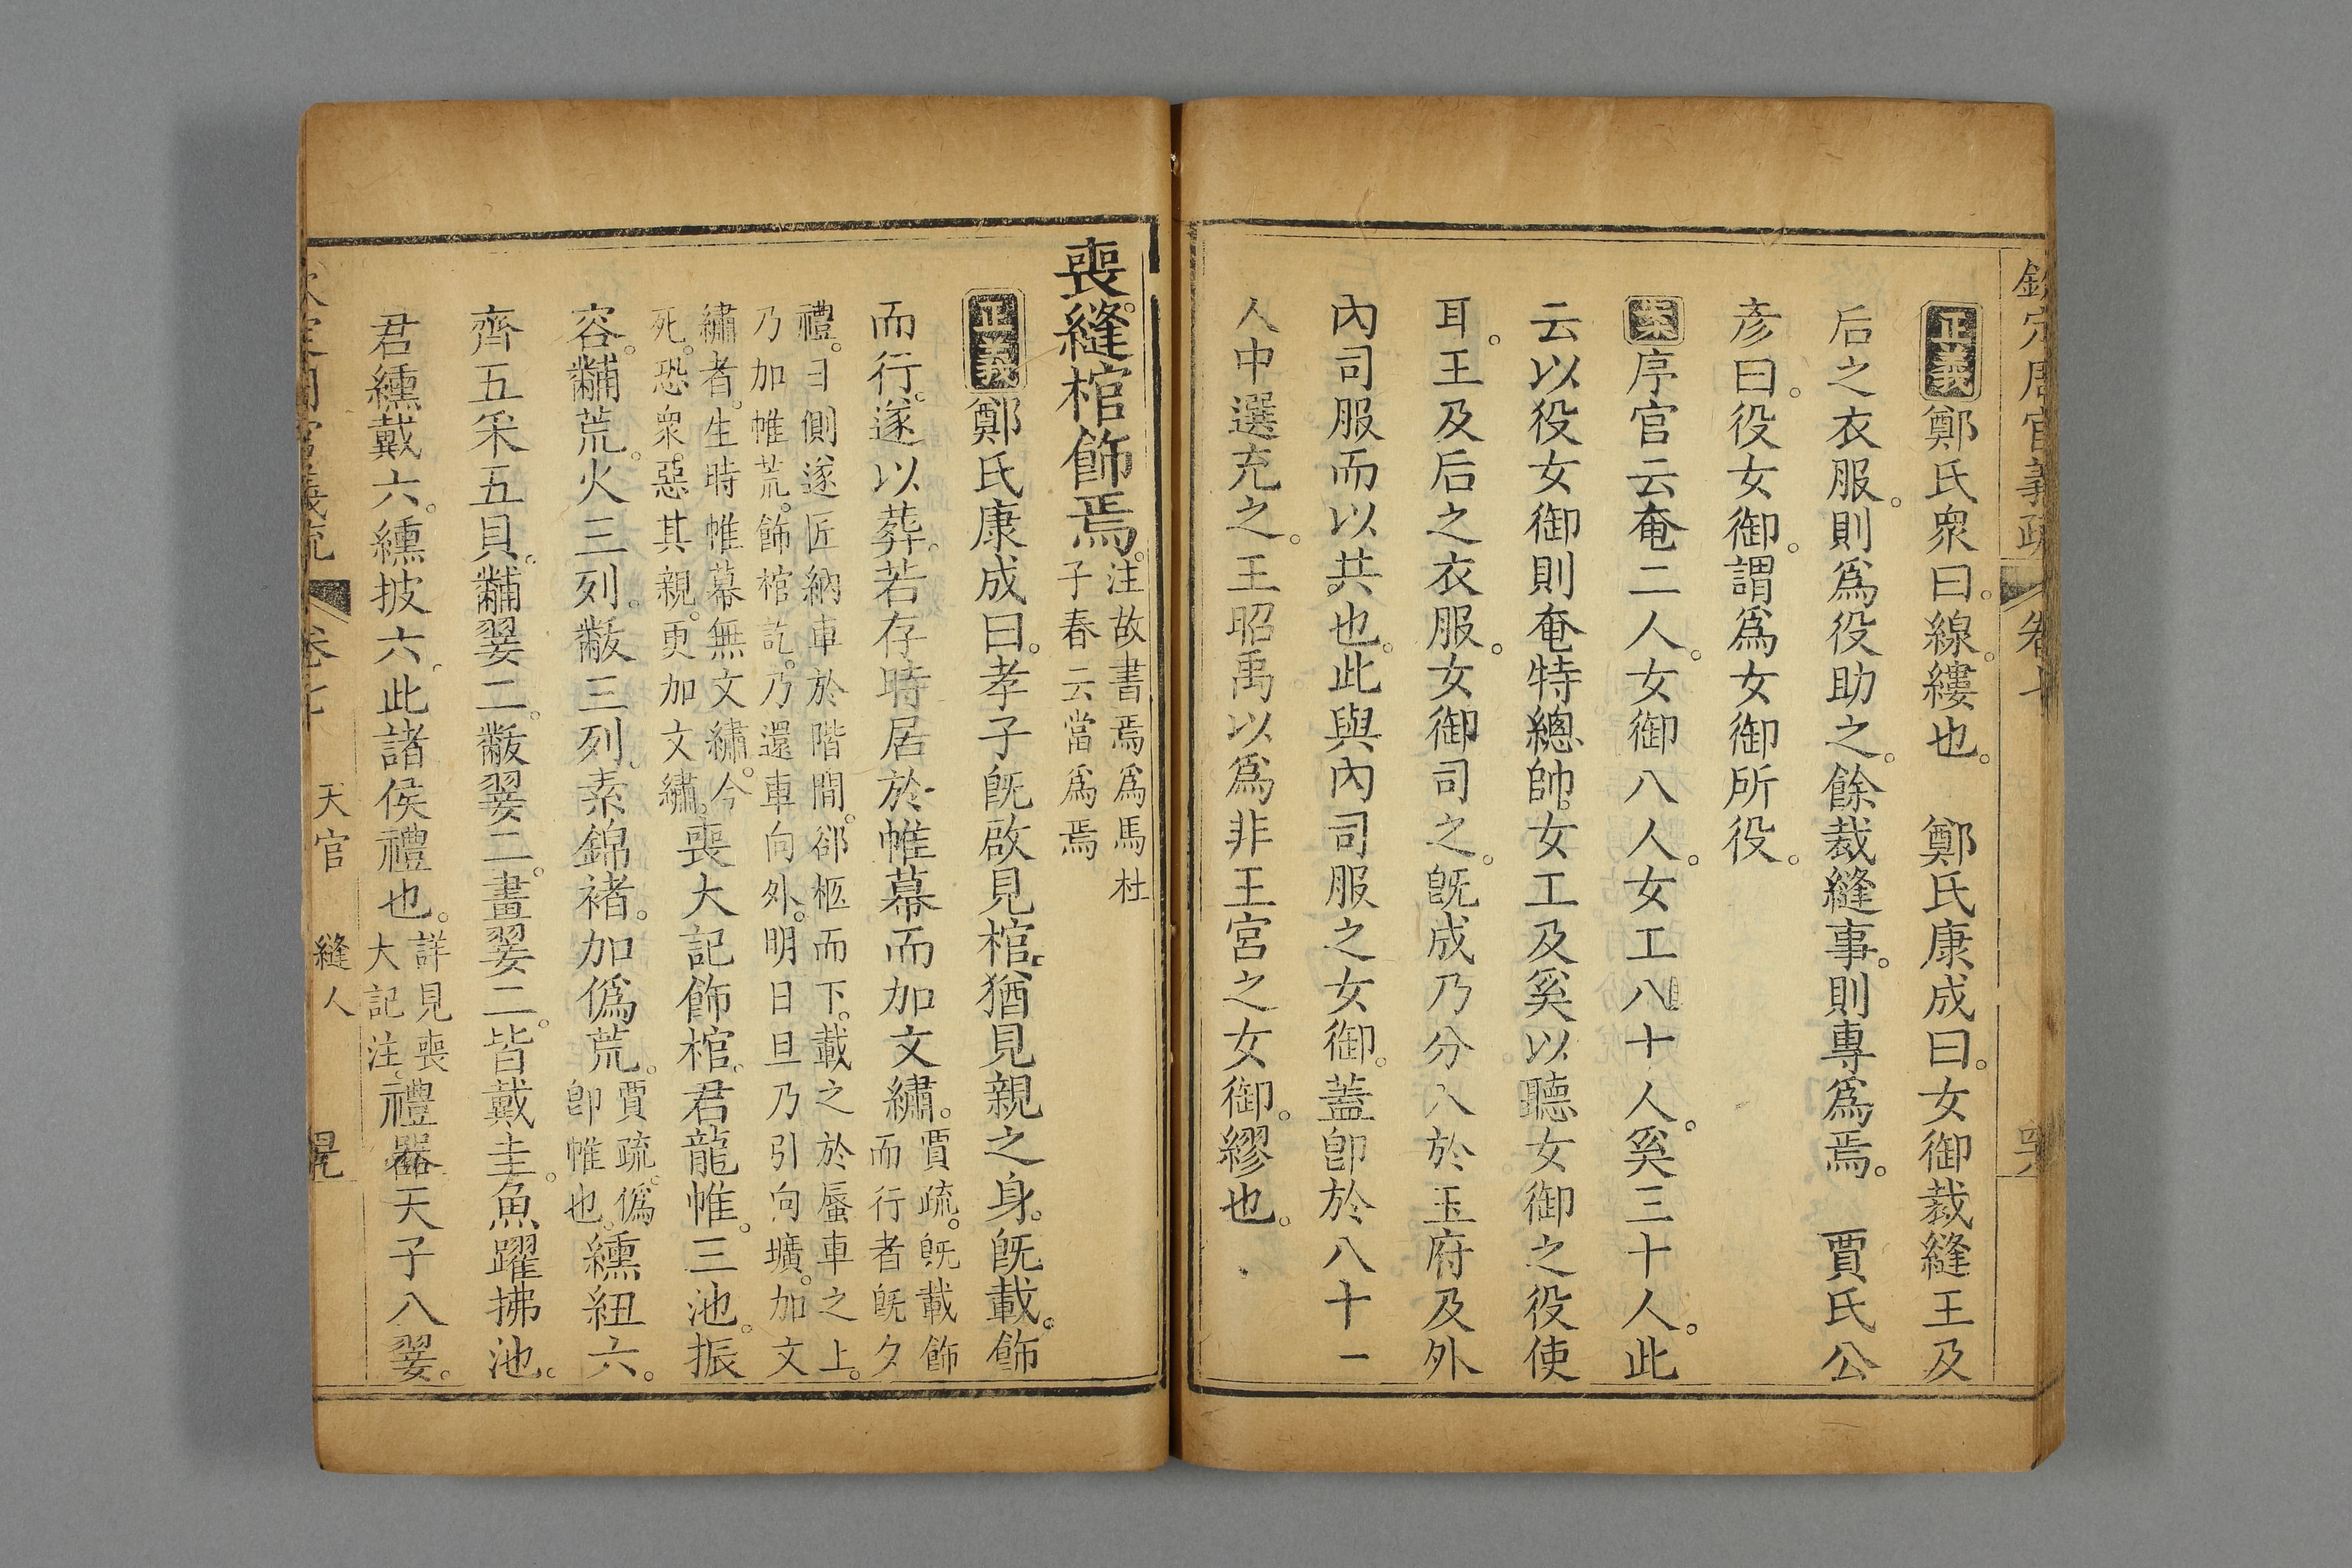 正義鄭氏衆曰。線。縷也。　鄭氏康成曰。女御裁縫王及
后之衣服。則爲役助之。餘裁縫事。則專爲焉。　賈氏公
彦曰。役女御。謂爲女御所役。
案序官云奄二人。女御八人。女工八十人。奚三十人。此
云以役女御則奄特總帥。女工及奚以聽女御之役使
耳。王及后之衣服。女御司之。旣成乃分入於玉府及外
內司服而以共也。此與內司服之女御。蓋卽於八十一
人中選充之。王昭禹以爲非王宮之女御。繆也。
喪。縫棺飾焉。
注故書焉爲馬杜
子春云當爲焉
正義鄭氏康成曰。孝子旣啟見棺。猶見親之身。旣載。飾
而行。遂以葬。若存時居於帷幕而加文繡。
賈疏。旣載飾
而行者旣夕
禮。日側遂匠納車於階間。郤柩而下。載之於蜃車之上。
乃加帷荒。飾棺訖。乃還車向外。明日旦乃引向壙。加文
繡者。生時帷幕無文繡。今
死。恐衆惡其親。更加文繡。
喪大記飾棺。君龍帷。三池。振
容。黼荒。火三列。黻三列。素錦褚。加僞荒。
賈疏。僞
卽帷也。
纁紐六。
齊五采五貝。黼翣二。黻翣二。畫翣二。皆戴圭。魚躍拂池。
君纁戴六。纁披六。此諸侯禮也。
詳見喪
大記注。
禮器天子八翣。
天官　縫人